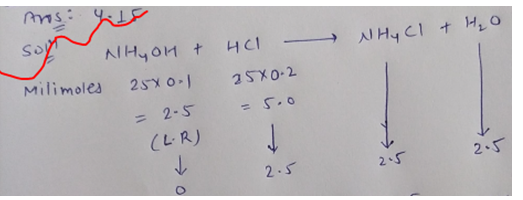 Ans: 4.15
Soln NH4OH + HCl ⟶ NH4Cl + H2O
Milimoles 25×0.1 25×0.2
= 2.5 = 5.0
(L.R) ↓ ↓ ↓
↓ 2.5 2.5 2.5
0